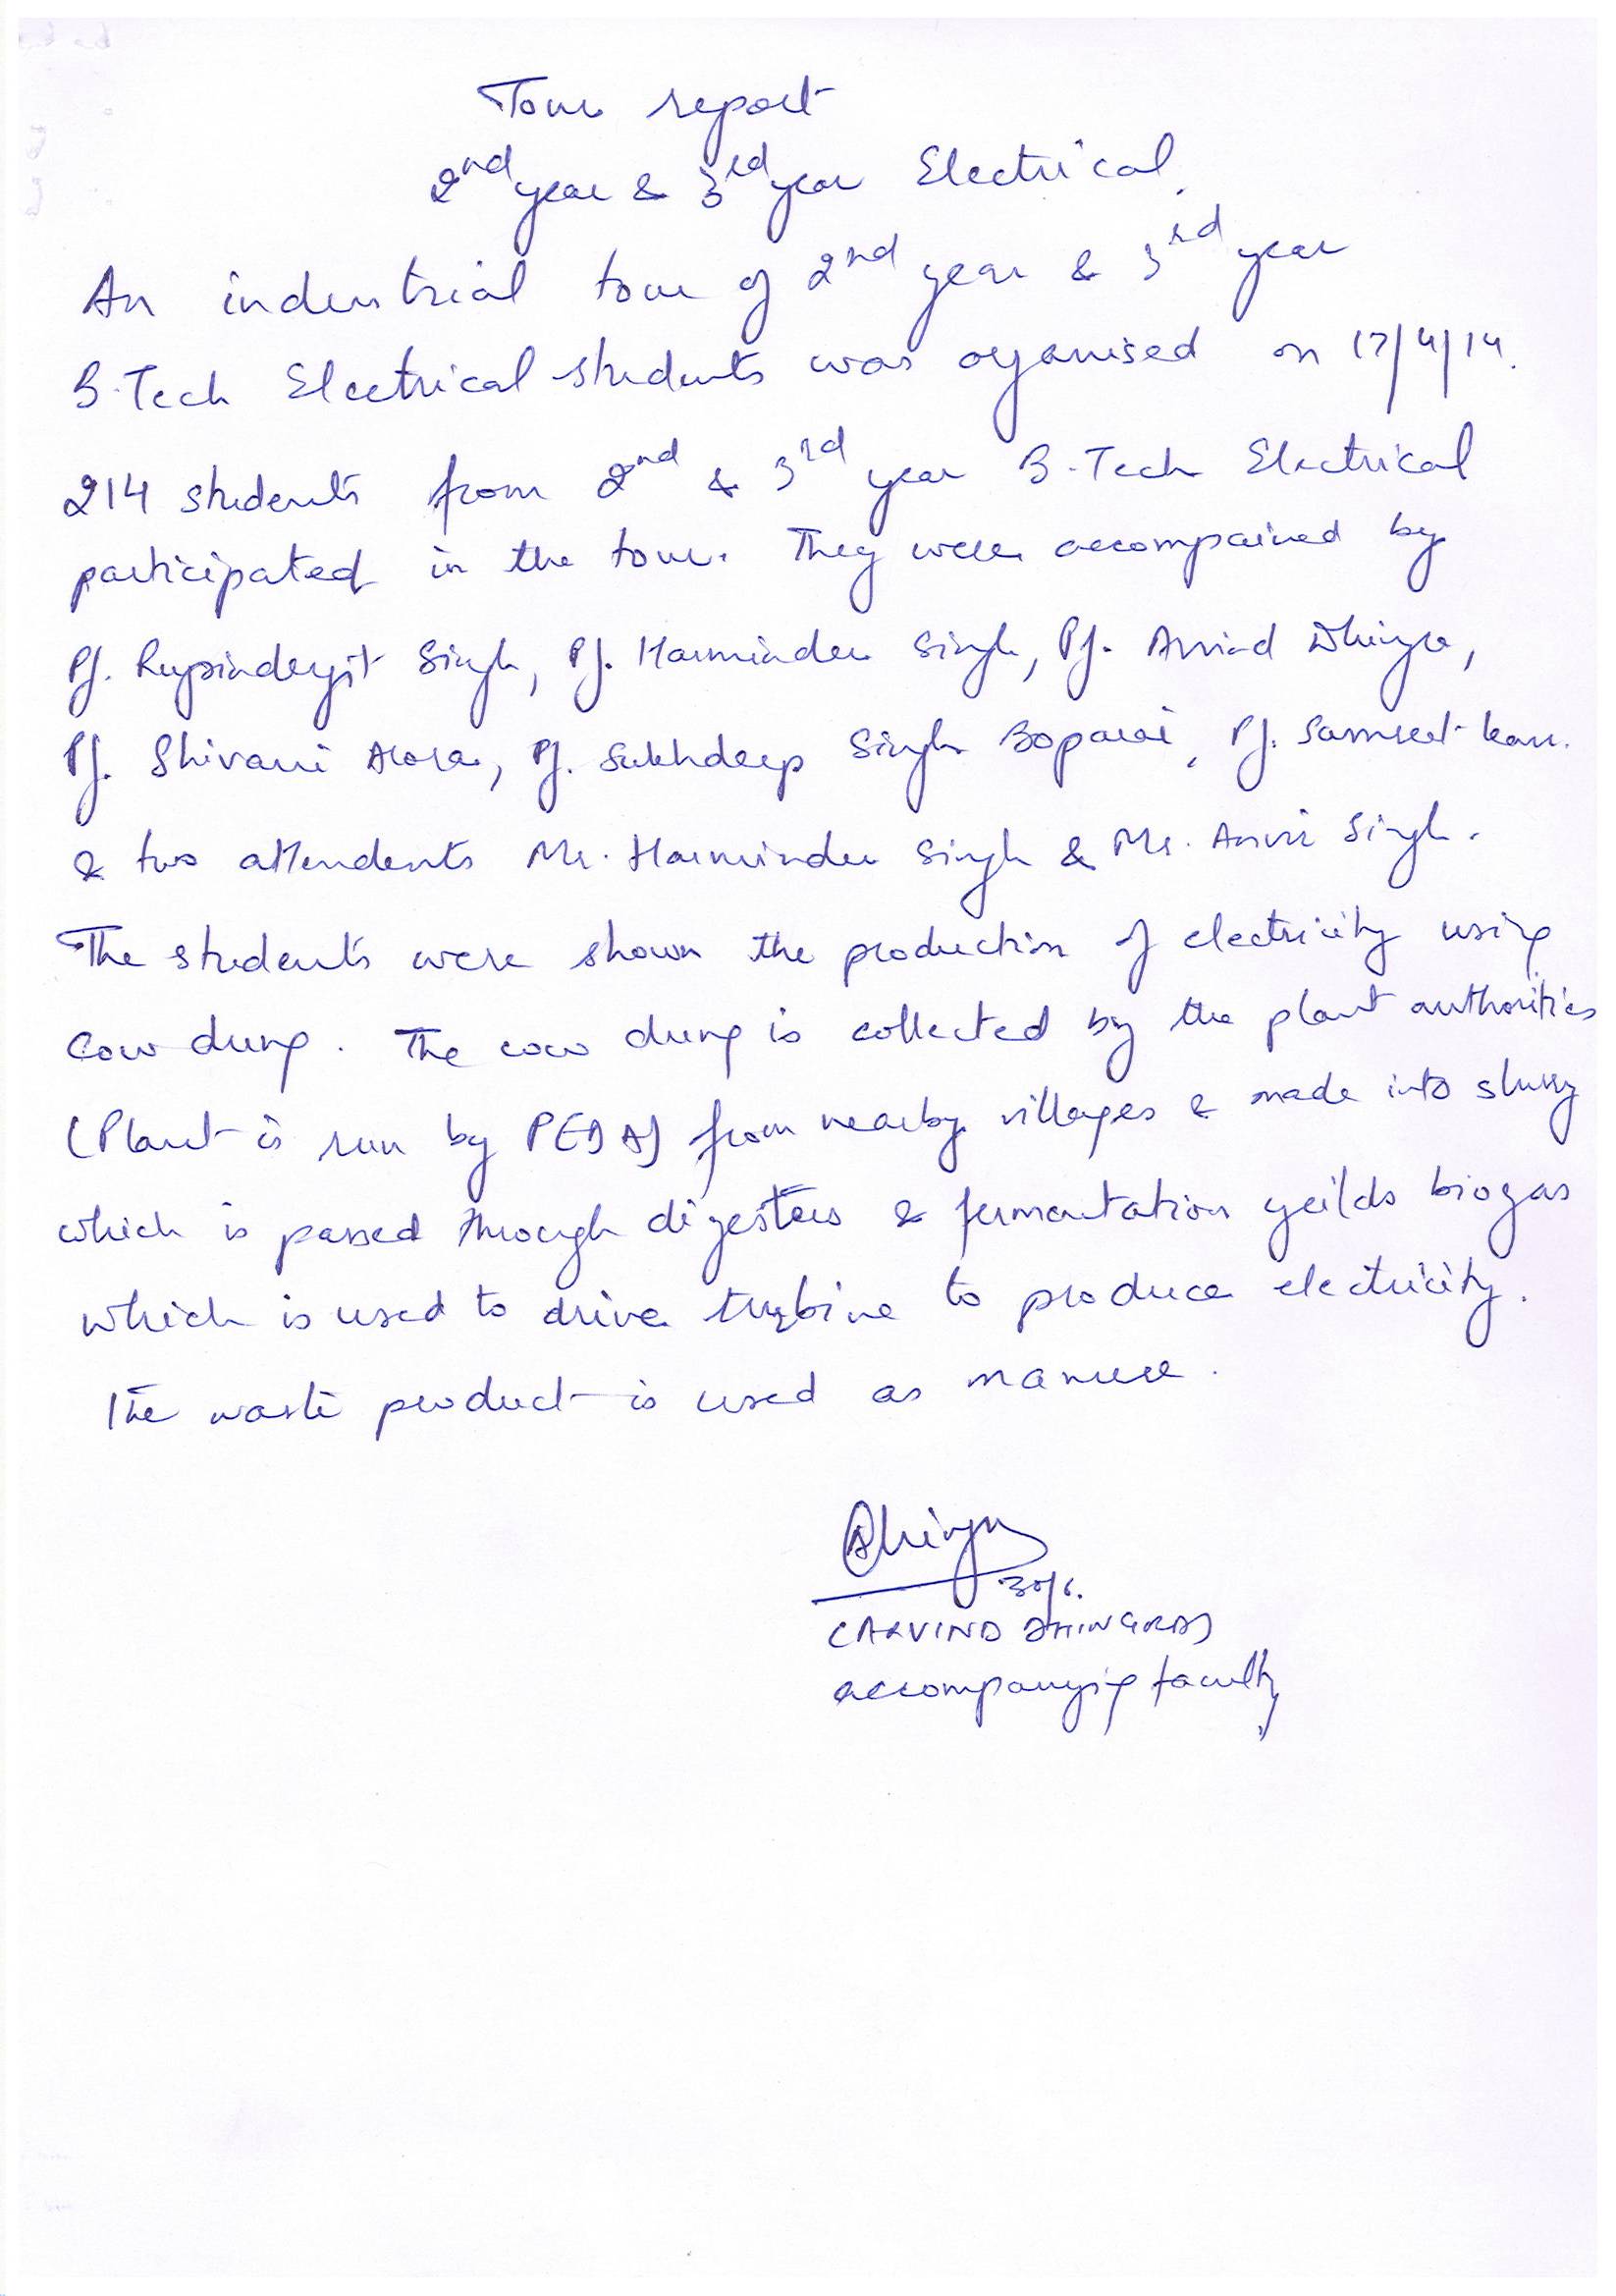 Tour report
2nd year & 3rd year Electrical.
An industrial tour of 2nd year & 3rd year
B.Tech Electrical students was organised on 17/4/14.
214 students from 2nd & 3rd year B.Tech Electrical
participated in the tour. They were accompained by
Pf. Rupinderjit Singh, Pf. Harminder Singh, Pf. Arvind Dhingra,
Pf. Shivani Arora, Pf. Sukhdeep Singh Boparai, Pf. Samreet Kaur.
& two attendents Mr. Harminder Singh & Mr. Singh.
The students were shown the production of electricity using
cow dung. The cow dung is collected by the plant authorities
(Plant is run by PEDA) from nearby villages & made into slurry
which is passed through digesters & fermentation yeilds biogas
which is used to drive turbine to produce electricity.
The waste product is used as manure.
Dhingra
30/6.
(ARVIND DHINGRA)
accompanying faculty